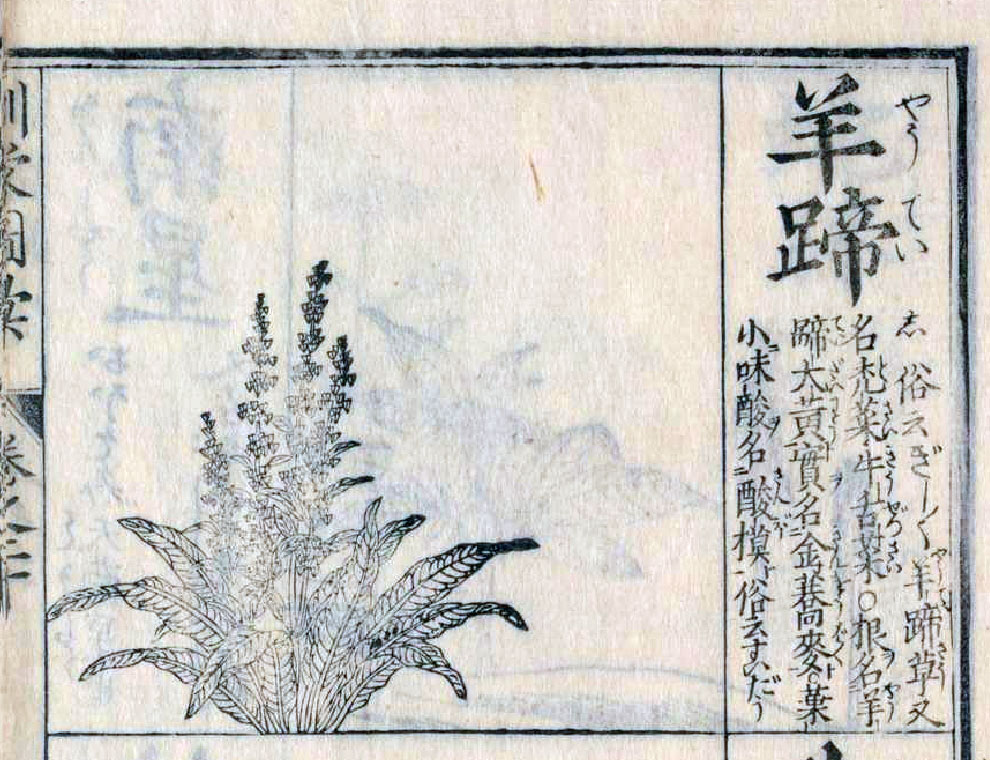 やうてい
羊蹄
し 俗云ぎし〱 羊蹄草又
名禿菜牛舌菜○根名羊
蹄大黄實名金蕎麥葉
小味酸名酸模俗云すいだう
訓蒙圖彙 卷之二十